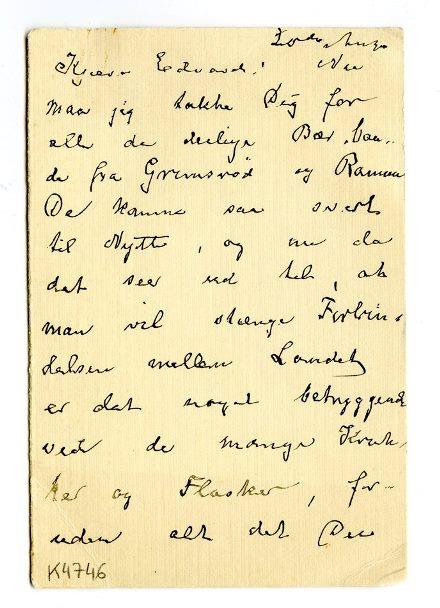 Kjære Edvard! Nu
maa jeg takke Dig for
alle de deilige Bær, baa-
de fra Grimsrød og Ramme
De komme saa svert
til Nytte, og nu da
det seer ud til, at
man vil stænge Forbin-
delsen mellem Landet,
er det noget betryggende
ved de mange Kruk-
ker og Flasker, for-
uden alt det Du
K4746